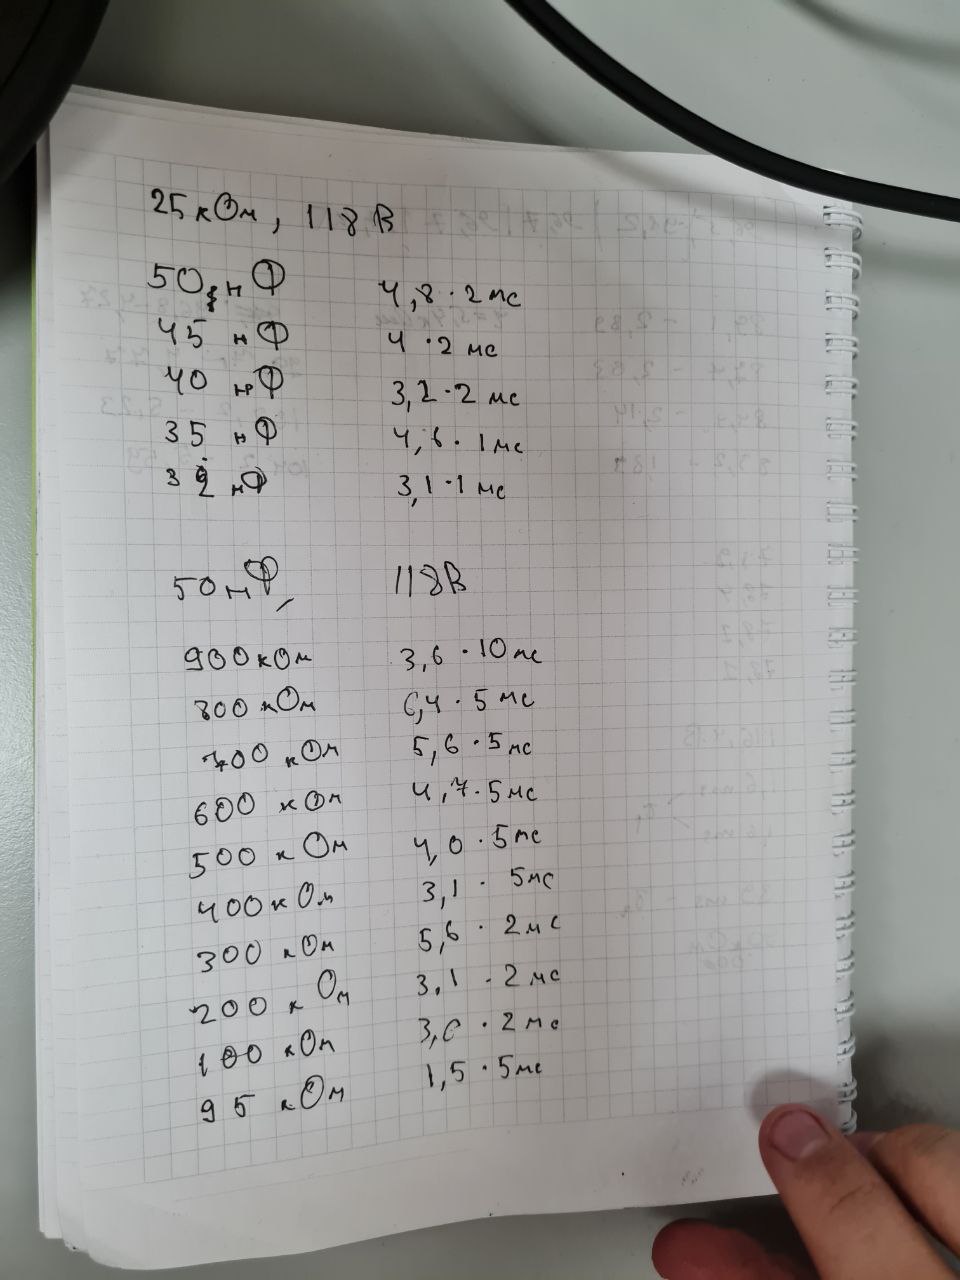 25 кОм, 118 В
50 нФ 4,8 · 2 мс
45 нФ 4 · 2 мс
40 нФ 3,2 · 2 мс
35 нФ 4,6 · 1 мс
32 нФ 3,1 · 1 мс
50 нФ, 118 В
900 кОм 3,6 · 10 мс
800 кОм 6,4 · 5 мс
700 кОм 5,6 · 5 мс
600 кОм 4,7 · 5 мс
500 кОм 4,0 · 5 мс
400 кОм 3,1 · 5 мс
300 кОм 5,6 · 2 мс
200 кОм 3,1 · 2 мс
100 кОм 3,0 · 2 мс
95 кОм 1,5 · 5 мс